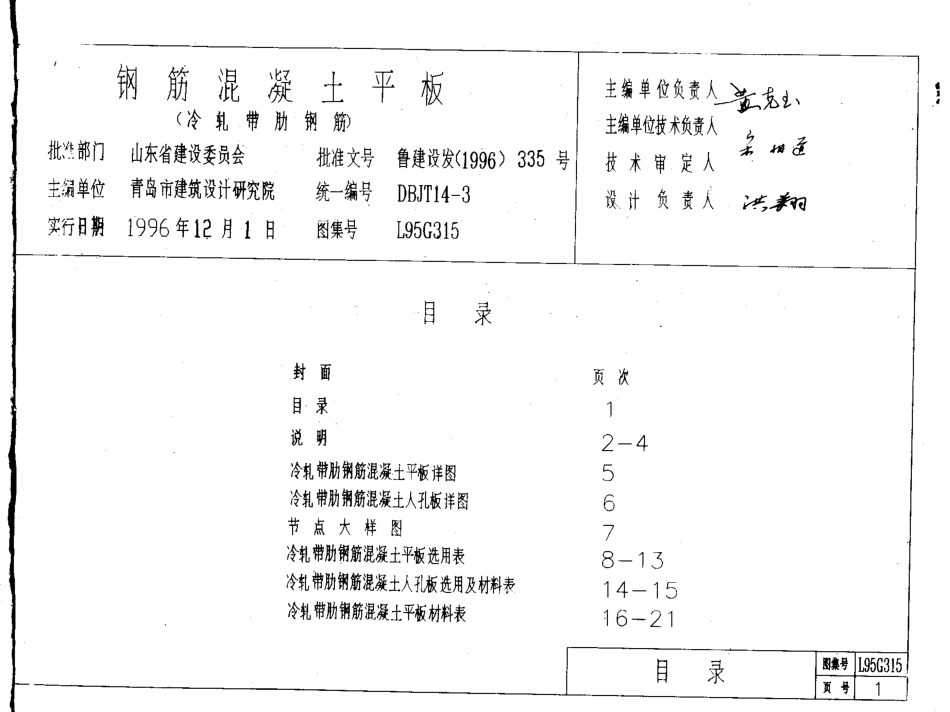 钢筋混凝土平板
（冷轧带肋钢筋）
批准部门 山东省建设委员会 批准文号 鲁建设发(1996) 335 号
主编单位 青岛市建筑设计研究院 统一编号 DBJT14-3
实行日期 1996年12月1日 图集号 L95G315
主编单位负责人
主编单位技术负责人
技术审定人
设计负责人 洪翔
目录
封面 页次
目录 1
说明 2-4
冷轧带肋钢筋混凝土平板详图 5
冷轧带肋钢筋混凝土人孔板详图 6
节点大样图 7
冷轧带肋钢筋混凝土平板选用表 8-13
冷轧带肋钢筋混凝土人孔板选用及材料表 14-15
冷轧带肋钢筋混凝土平板材料表 16-21
目录 图集号 L95G315
页号 1